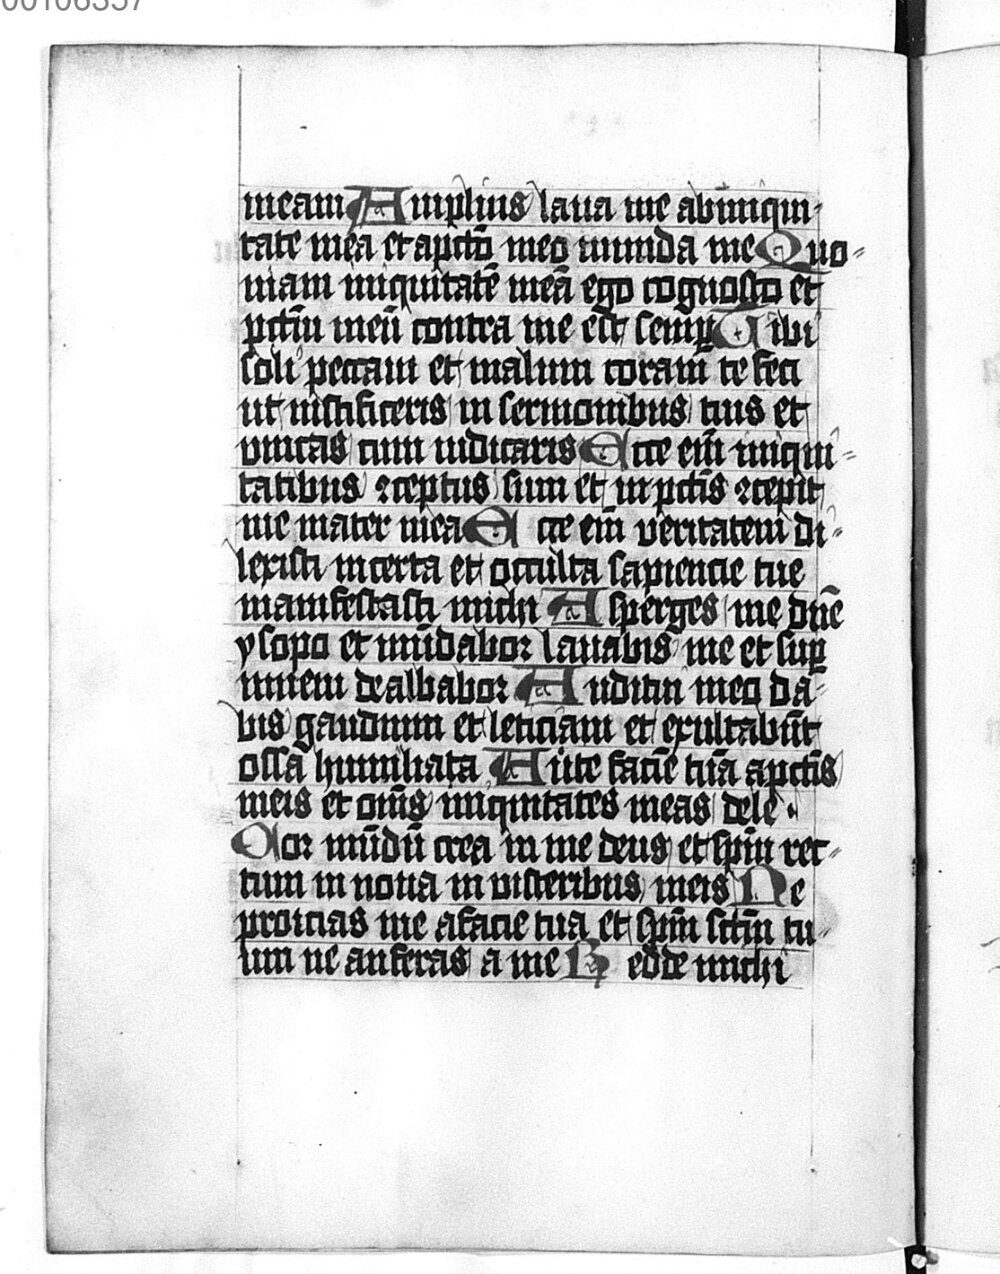 00106357
meam Amplius laua me abiniqui-
tate mea et a pctō meo munda me Quo-
niam iniquitatē meā ego cognosco et
pctm̄ meū contra me est semꝑ Tibi
soli peccaui et malum coram te feci
ut iustificeris in sermonibus tuis et
vincas cum iudicaris Ecce em̄ iniqui-
tatibus ꝯceptus sum et in pctīs ꝯcepit
me mater mea Ecce em̄ veritatem di-
lexisti incerta et occulta sapiencie tue
manifestasti michi Asperges me dn̄e
ysopo et mūdabor lauabis me et suꝑ
niuem dealbabor Auditui meo da-
bis gaudium et leticiam et exultabūt
ossa humiliata Auerte faciē tuā a pctīs
meis et om̄s iniquitates meas dele
Cor mūdū crea in me deus et spm̄ rec-
tum in noua in visceribus meis Ne
proicias me a facie tua et spm̄ sctm̄ tu-
um ne auferas a me Redde michi